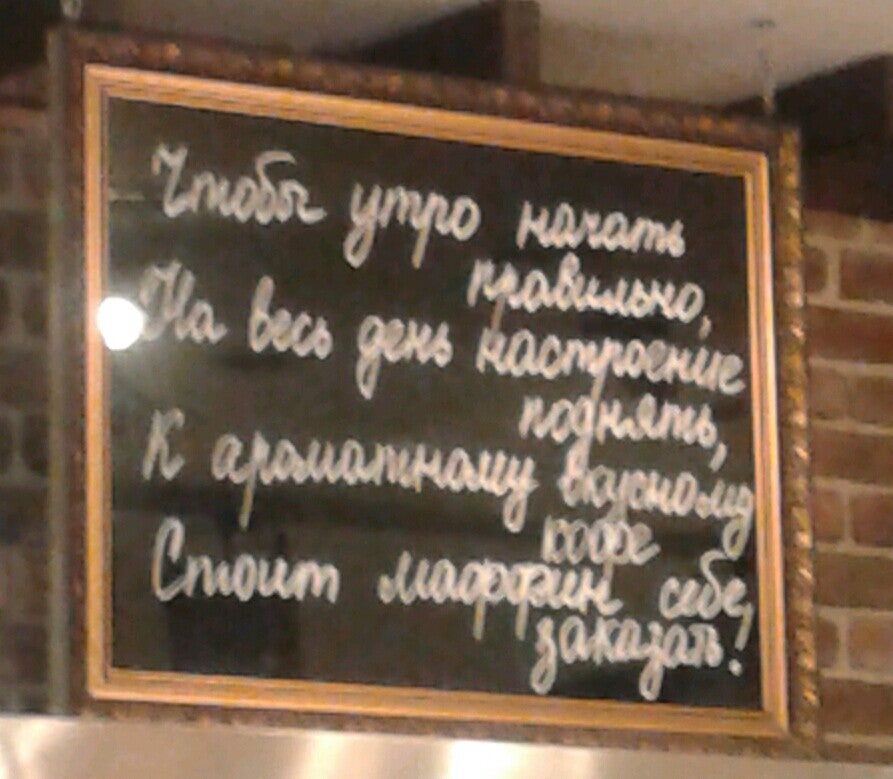 Чтобы утро начать
правильно,
На весь день настроение
поднять,
К ароматному вкусному
кофе
Стоит маффин себе,
заказать!